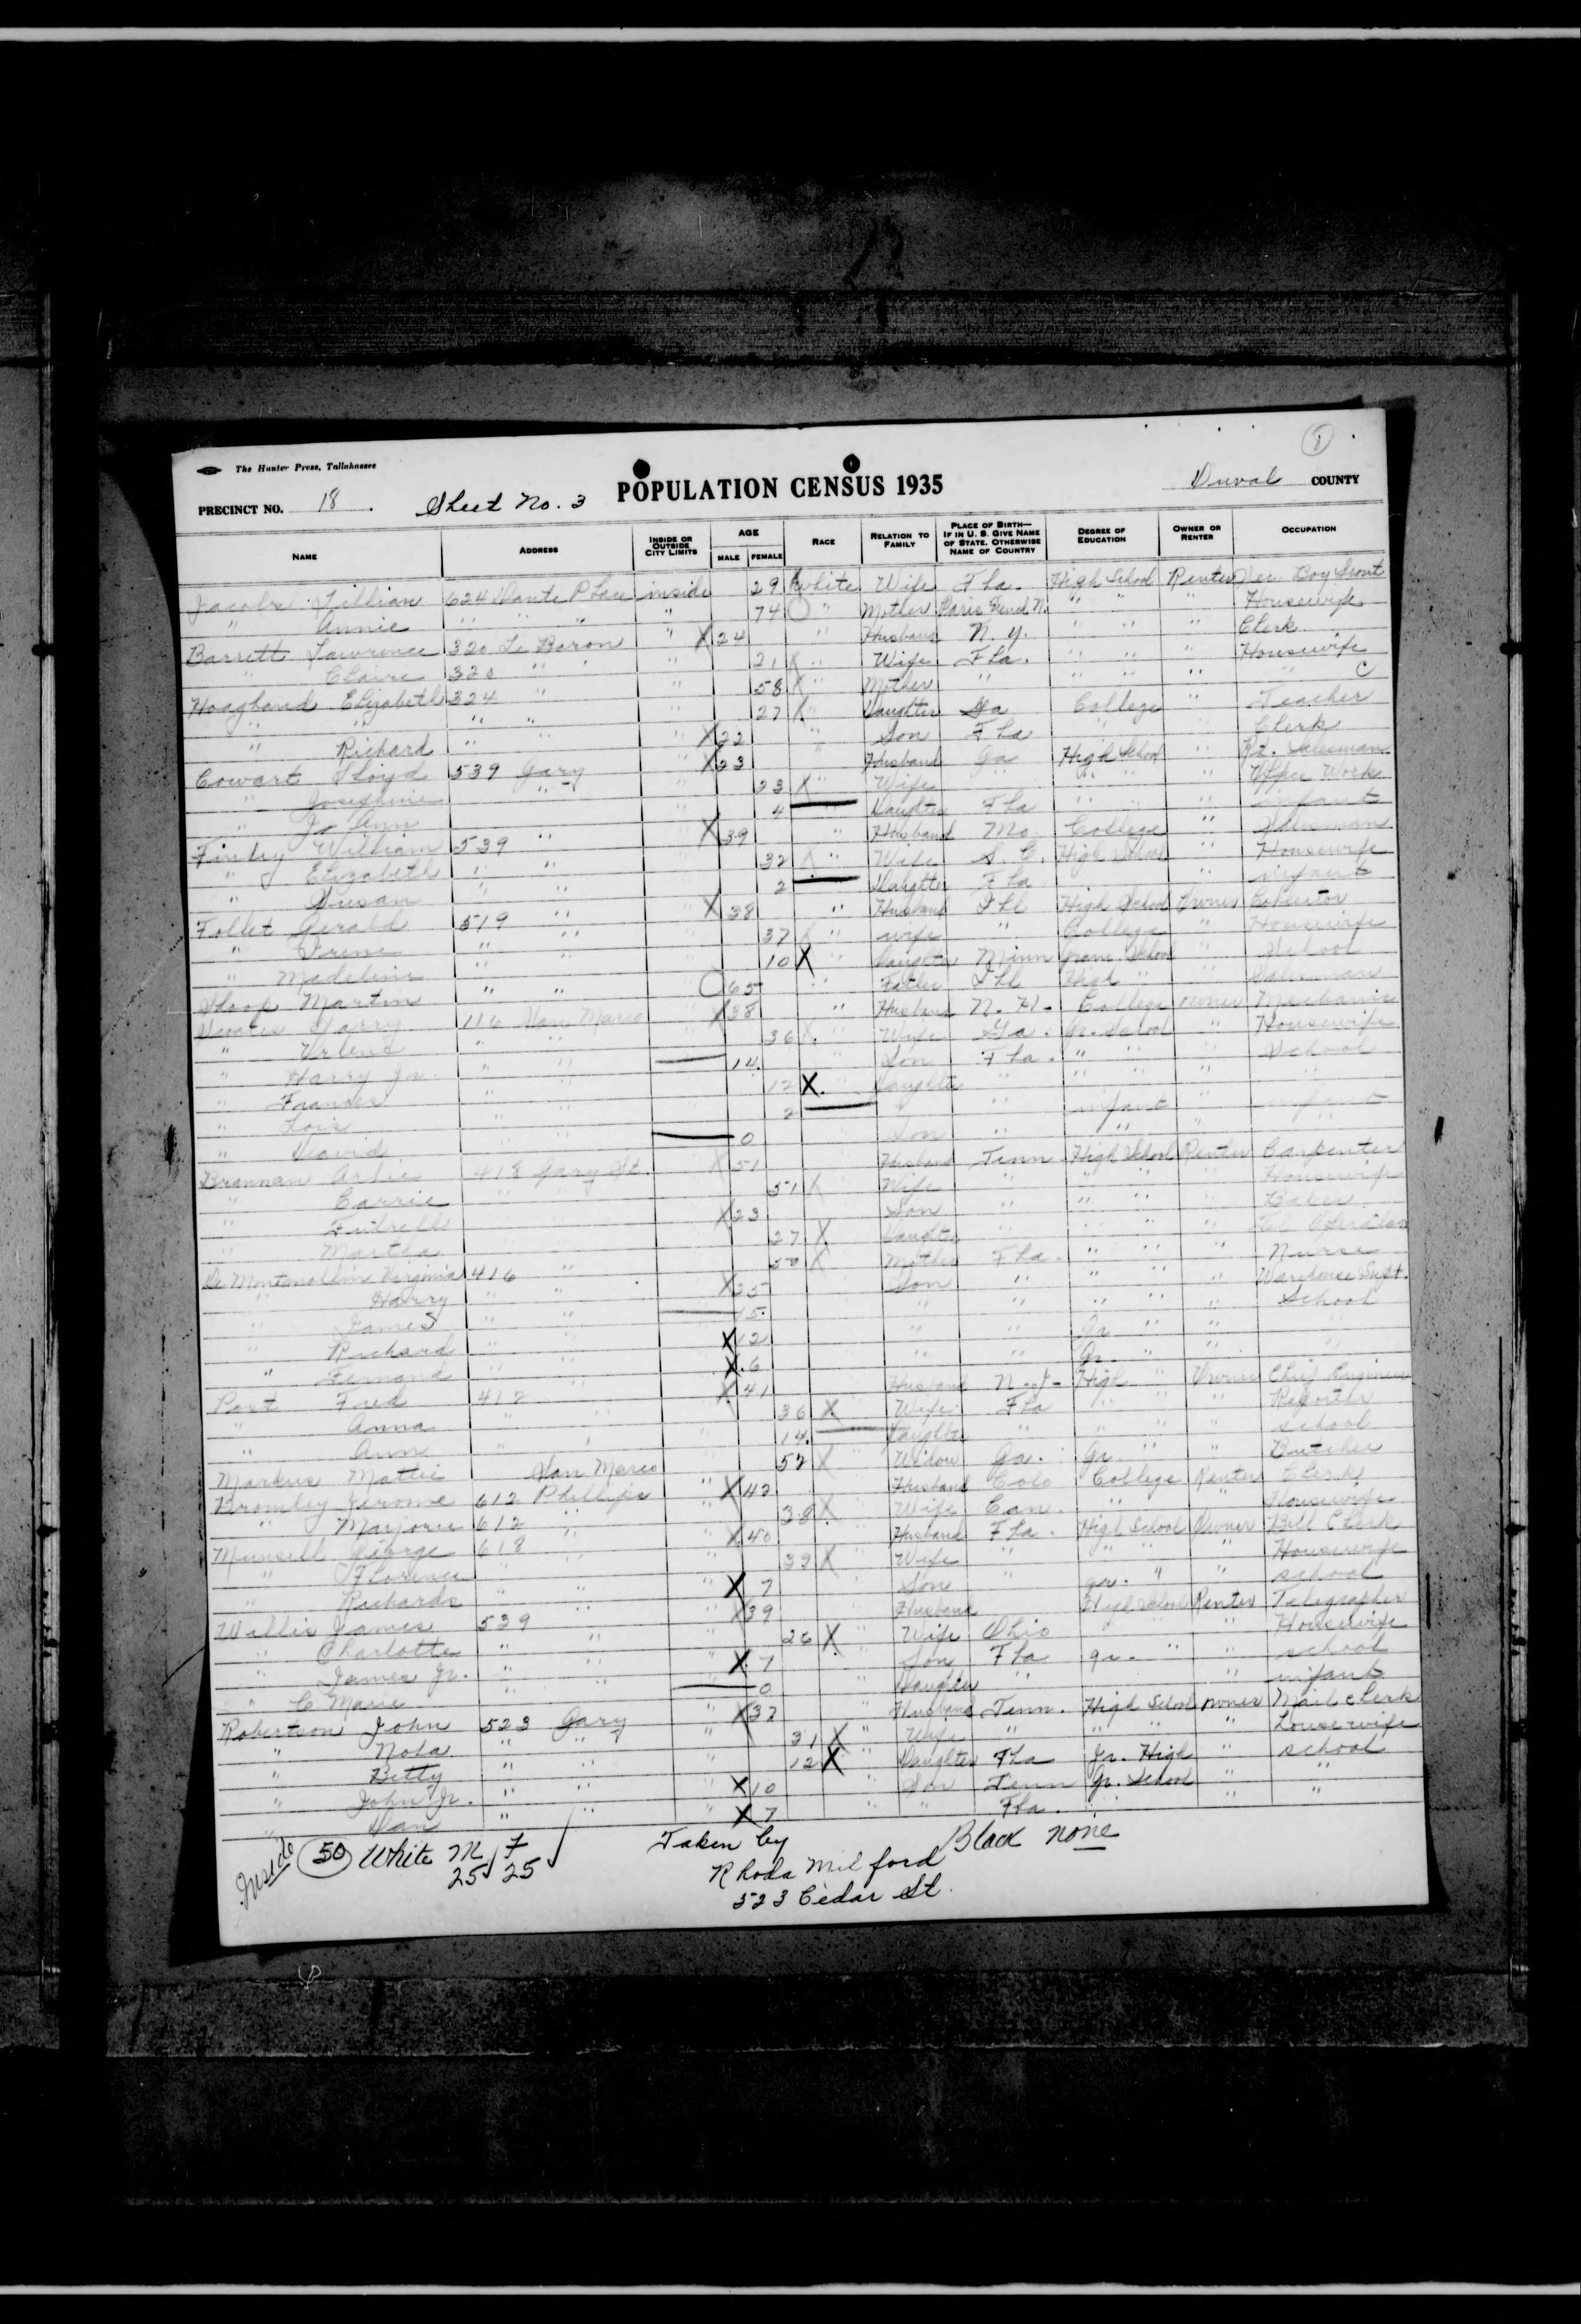 The Hunter Press, Tallahassee
8
POPULATION CENSUS 1935
Duval COUNTY
PRECINCT NO. 18. Sheet No. 3
NAME ADDRESS INSIDE OR OUTSIDE CITY LIMITS AGE MALE FEMALE RACE RELATION TO FAMILY PLACE OF BIRTH—IF IN U. S. GIVE NAME OF STATE. OTHERWISE NAME OF COUNTRY DEGREE OF EDUCATION OWNER OR RENTER OCCUPATION
Jacobs Lillian 624 Dante Place inside 29 White Wife Fla. High School Renter Sec. Boy Scout
" Annie " " " 74 " Mother Paris " " " Housewife
Barrett Lawrence 320 Le Baron " X 24 " Husband N. Y. " " " Clerk
" Claire 320 " " 21 X " Wife Fla. " " " Housewife
Hoagland Elizabeth 324 " " 58 X " Mother " " " " " C
" " " " " 27 X " Daughter Ga College " Teacher
" Richard " " " X 22 " Son Fla " " Clerk
Cowart Lloyd 539 Gary " X 23 Husband Ga High School " Rt. Salesman
" Josephine " " 23 X " Wife " " " " Office Work
" Jo Ann " 4 Daughter Fla " " " infant
Finley William 539 " X 39 " Husband Mo. College " Salesman
" Elizabeth " " 32 X " Wife S. C. High School " Housewife
" Susan " " 2 Daughter Fla " infant
Follet Gerald 519 " " X 38 " Husband Ill High School Owner
" Irene " " 37 X " wife " College " Housewife
" Madeline " " 10 X " Daughter Minn Gram. School " School
Martin " " O 65 " Father Ill High " " Salesman
Harry 116 San Marco X 38 " Husband N. H. College owner Mechanic
" " " 36 X Wife Ga. Gr. School " Housewife
" Harry Jr. " " 14 Son Fla. " " " School
" Frances " " 12 X Daughter " " " " "
" Lois " " 2 " " infant " infant
" David " " 0 Son " " " "
Brannan 418 Gary St. X 51 Husband Tenn. High School Renter Carpenter
" Carrie " " 51 X Wife " " " " Housewife
" " " X 23 Son " " " " Baker
" Martha 27 X Daughter " " " " Tel. Operator
De Montmollin Virginia 416 " 50 X Mother Fla. " " " Nurse
" Harry " " X 25 Son " " " " Warehouse Supt.
" James " " 15 " " " " " School
" Richard " " X 12 " " Gr " " "
" Fernand " " X 6 " " Gr. " " "
Post Fred 412 X 41 Husband N. J. High " Owner Chief Engineer
" Anna " " 36 X Wife Fla " " " Reporter
" Ann " " 14 Daughter " " " " school
Markus Mattie San Marco 52 X Widow Ga. Gr. " " Butcher
Bromley Jerome 612 Phillips " X 42 Husband Colo College Renter Clerk
" Marjorie 612 " 38 X Wife Can. " " Housewife
Munsell George 618 " " X 40 Husband Fla. High School Owner Bill Clerk
" Florence " " " 39 X Wife " " " " Housewife
" Richards " " " X 7 Son " gr. " " school
Willis James 539 " " X 39 Husband High School Renter Telegrapher
" Charlotte " " " 26 X " Wife Ohio " " " Housewife
" James Jr. " " " X 7 Son Fla gr. " " school
" C Marie " " 0 Daughter " " infant
Robertson John 523 Gary " X 37 Husband Tenn. High School owner Mail clerk
" Nola " " " 31 X " Wife " " " " housewife
" Betty " " " 12 X " Daughter Fla Jr. High " school
" John Jr. " " " X 10 " Son Tenn Gr. School " "
" Dan " " " X 7 " " Fla. " " "
Inside 50 White M 25 F 25
Taken by
Rhoda Milford
523 Cedar St.
Black none